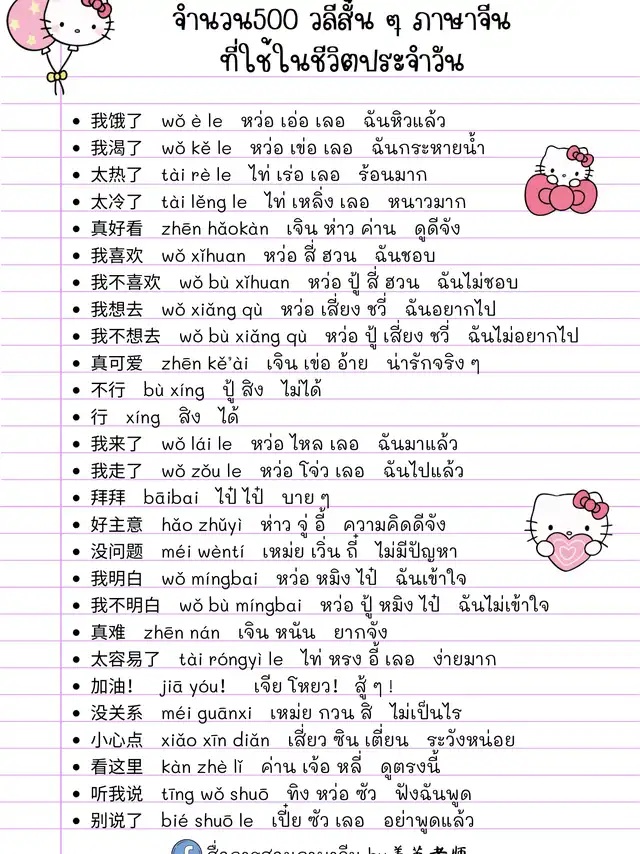 จำนวน500 วลีสั้น ๆ ภาษาจีน
ที่ใช้ในชีวิตประจำวัน
• 我饿了 wǒ è le หว่อ เอ้อ เลอ ฉันหิวแล้ว
• 我渴了 wǒ kě le หว่อ เข่อ เลอ ฉันกระหายน้ำ
• 太热了 tài rè le ไท่ เร่อ เลอ ร้อนมาก
• 太冷了 tài lěng le ไท่ เหลิ่ง เลอ หนาวมาก
• 真好看 zhēn hǎokàn เจิน ห่าว ค่าน ดูดีจัง
• 我喜欢 wǒ xǐhuan หว่อ สี่ ฮวน ฉันชอบ
• 我不喜欢 wǒ bù xǐhuan หว่อ ปู้ สี่ ฮวน ฉันไม่ชอบ
• 我想去 wǒ xiǎng qù หว่อ เสี่ยง ชวี่ ฉันอยากไป
• 我不想去 wǒ bù xiǎng qù หว่อ ปู้ เสี่ยง ชวี่ ฉันไม่อยากไป
• 真可爱 zhēn kě'ài เจิน เข่อ อ้าย น่ารักจริง ๆ
• 不行 bù xíng ปู้ สิง ไม่ได้
• 行 xíng สิง ได้
• 我来了 wǒ lái le หว่อ ไหล เลอ ฉันมาแล้ว
• 我走了 wǒ zǒu le หว่อ โจ่ว เลอ ฉันไปแล้ว
• 拜拜 bāibai ไป๋ ไป๋ บาย ๆ
• 好主意 hǎo zhǔyì ห่าว จู่ อี้ ความคิดดีจัง
• 没问题 méi wèntí เหม่ย เวิ่น ถี๋ ไม่มีปัญหา
• 我明白 wǒ míngbai หว่อ หมิง ไป๋ ฉันเข้าใจ
• 我不明白 wǒ bù míngbai หว่อ ปู้ หมิง ไป๋ ฉันไม่เข้าใจ
• 真难 zhēn nán เจิน หนัน ยากจัง
• 太容易了 tài róngyì le ไท่ หรง อี้ เลอ ง่ายมาก
• 加油！ jiā yóu！ เจีย โหยว! สู้ ๆ !
• 没关系 méi guānxi เหม่ย กวน สิ ไม่เป็นไร
• 小心点 xiǎo xīn diǎn เสี่ยว ซิน เตี่ยน ระวังหน่อย
• 看这里 kàn zhè lǐ ค่าน เจ้อ หลี่ ดูตรงนี้
• 听我说 tīng wǒ shuō ทิง หว่อ ซัว ฟังฉันพูด
• 别说了 bié shuō le เปี๋ย ซัว เลอ อย่าพูดแล้ว